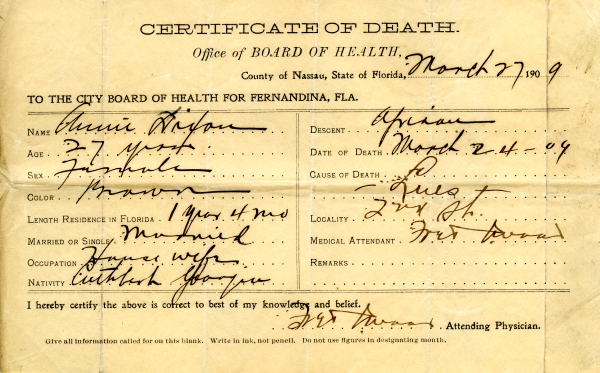 CERTIFICATE OF DEATH.
Office of BOARD OF HEALTH,
County of Nassau, State of Florida, March 27 1909
TO THE CITY BOARD OF HEALTH FOR FERNANDINA, FLA.
NAME Annie Dixon
AGE 27 years
SEX Female
COLOR Brown
LENGTH RESIDENCE IN FLORIDA 1 year 4 mo
MARRIED OR SINGLE Married
OCCUPATION House wife
NATIVITY Cuthbert Georgia
DESCENT African
DATE OF DEATH March 24-09
CAUSE OF DEATH
LOCALITY 2nd St.
MEDICAL ATTENDANT
REMARKS
I hereby certify the above is correct to best of my knowledge and belief.
Attending Physician.
Give all information called for on this blank. Write in ink, not pencil. Do not use figures in designating month.